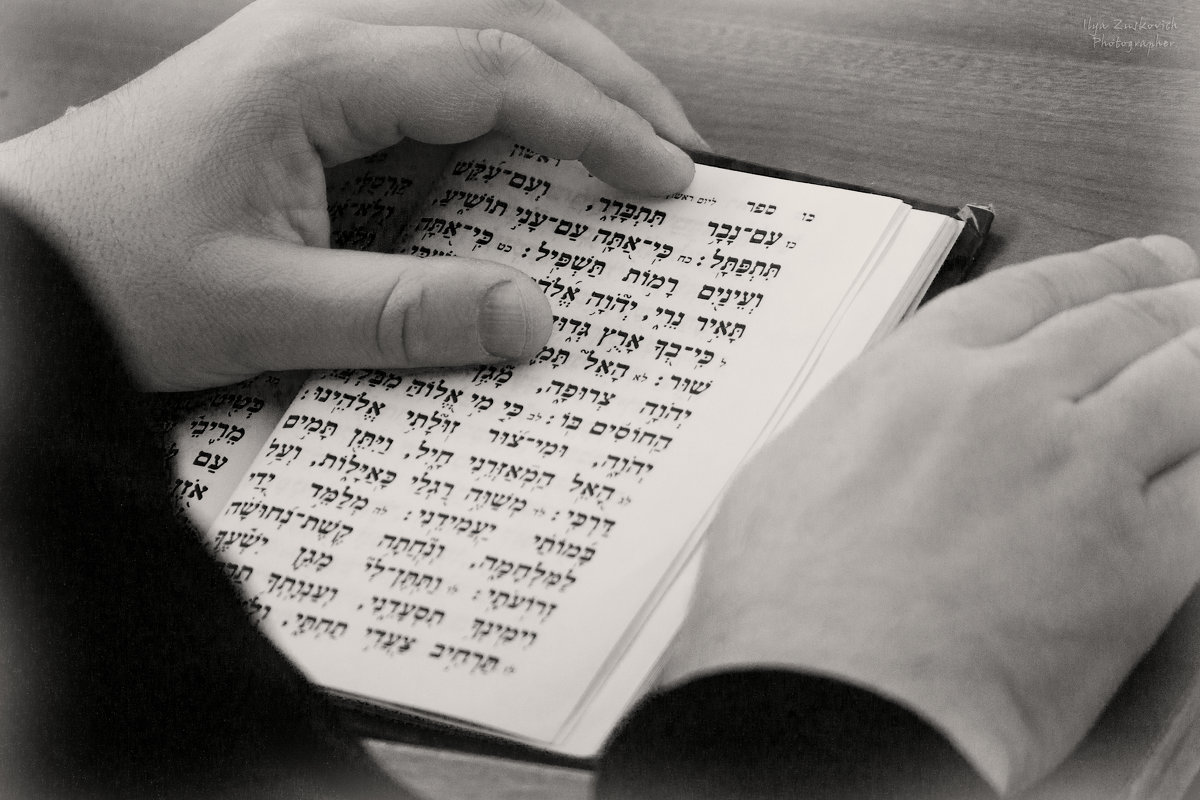 כו ספר ליום ראשון
כז עִם־נָבָר תִּתְבָּרָר, וְעִם־עִקֵּשׁ
תִּתְפַּתָּל: כח כִּי־אַתָּה עַם־עָנִי תוֹשִׁיעַ,
וְעֵינַיִם רָמוֹת תַּשְׁפִּיל: כט כִּי־אַתָּה
תָּאִיר נֵרִי, יְהוָה
ל כִּי־בְךָ אָרֻץ
שׁוּר: לא הָאֵל
יְהוָה צְרוּפָה, מָגֵן
הַחוֹסִים בּוֹ: לב כִּי מִי אֱלוֹהַּ
יְהוָה, וּמִי־צוּר זוּלָתִי אֱלֹהֵינוּ:
לג הָאֵל הַמְאַזְּרֵנִי חָיִל, וַיִּתֵּן תָּמִים
דַּרְכִּי: לד מְשַׁוֶּה רַגְלַי כָּאַיָּלוֹת, וְעַל
בָּמוֹתַי יַעֲמִידֵנִי: לה מְלַמֵּד יָדַי
לַמִּלְחָמָה, וְנִחֲתָה קֶשֶׁת־נְחוּשָׁה
זְרוֹעֹתָי: לו וַתִּתֶּן־לִי מָגֵן יִשְׁעֶךָ
וִימִינְךָ תִסְעָדֵנִי, וְעַנְוַתְךָ
לז תַּרְחִיב צַעֲדִי תַחְתָּי,
מְרִיבֵי
עַם
Ilya Zuskovich
Photographer